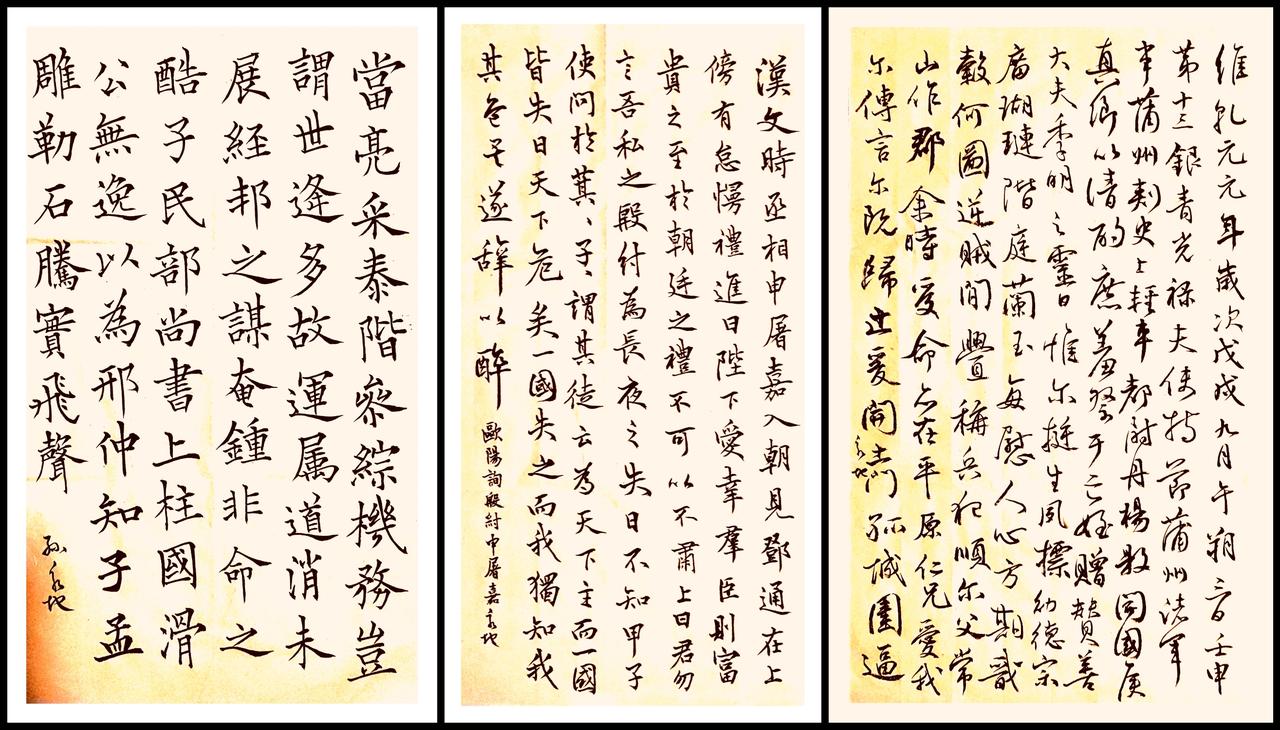 當亮采泰階參綜機務豈
謂世逢多故運属道消未
展經邦之謀奄鍾非命之
酷子民部尚書上柱國滑
公無逸以為邢仲知子孟
雕勒石騰實飛聲
漢文時丞相申屠嘉入朝見鄧通在上
傍有怠慢禮進曰陛下愛幸羣臣則富
貴之至於朝廷之禮不可以不肅上曰君勿
言吾私之殷紂為長夜之失日不知甲子
使問於箕、子、謂其徒云為天下主而一國
皆失日天下危矣一國失之而我獨知我
其危矣遂辤以醉
歐陽詢殷紂申屠嘉
維乹元元年歲次戊戌九月午朔三日壬申
第十三銀青光禄夫使持節蒲州諸軍
事蒲州刺史上輕車都尉丹楊縣開國侯
真卿以清酌庶羞祭于亡姪贈贊善
大夫季明之靈曰惟尔挺生夙標幼德宗
廟瑚璉階庭蘭玉每慰人心方期戩
穀何圖逆賊閒舋稱兵犯順尔父常
山作郡余時受命亦在平原仁兄愛我
尔傳言尔既歸止爰開土門孤城圍逼